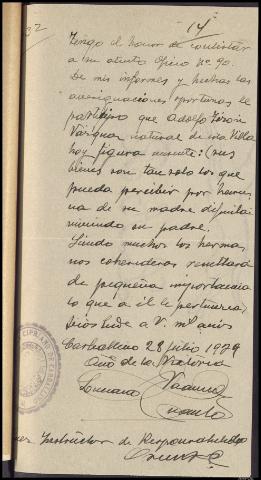 32
14
Tengo el honor de contestar
a su atento Oficio nº 90.
De mis informes y hechas las
averiguaciones oportunas le
participo que Adolfo
Vazquez natural de esta Villa
hoy figura ausente: (sus
bienes son tan solo los que
pueda percibir por heren
cia de su madre difunta
viviendo su padre.
Siendo muchos los herma
nos coherederos resultará
de pequeña importancia
lo que a él le pertenezca)
Dios Gude a V. ms años
Carballino 28 julio 1939
Año de la Victoria
Instructor de Responsabilidades